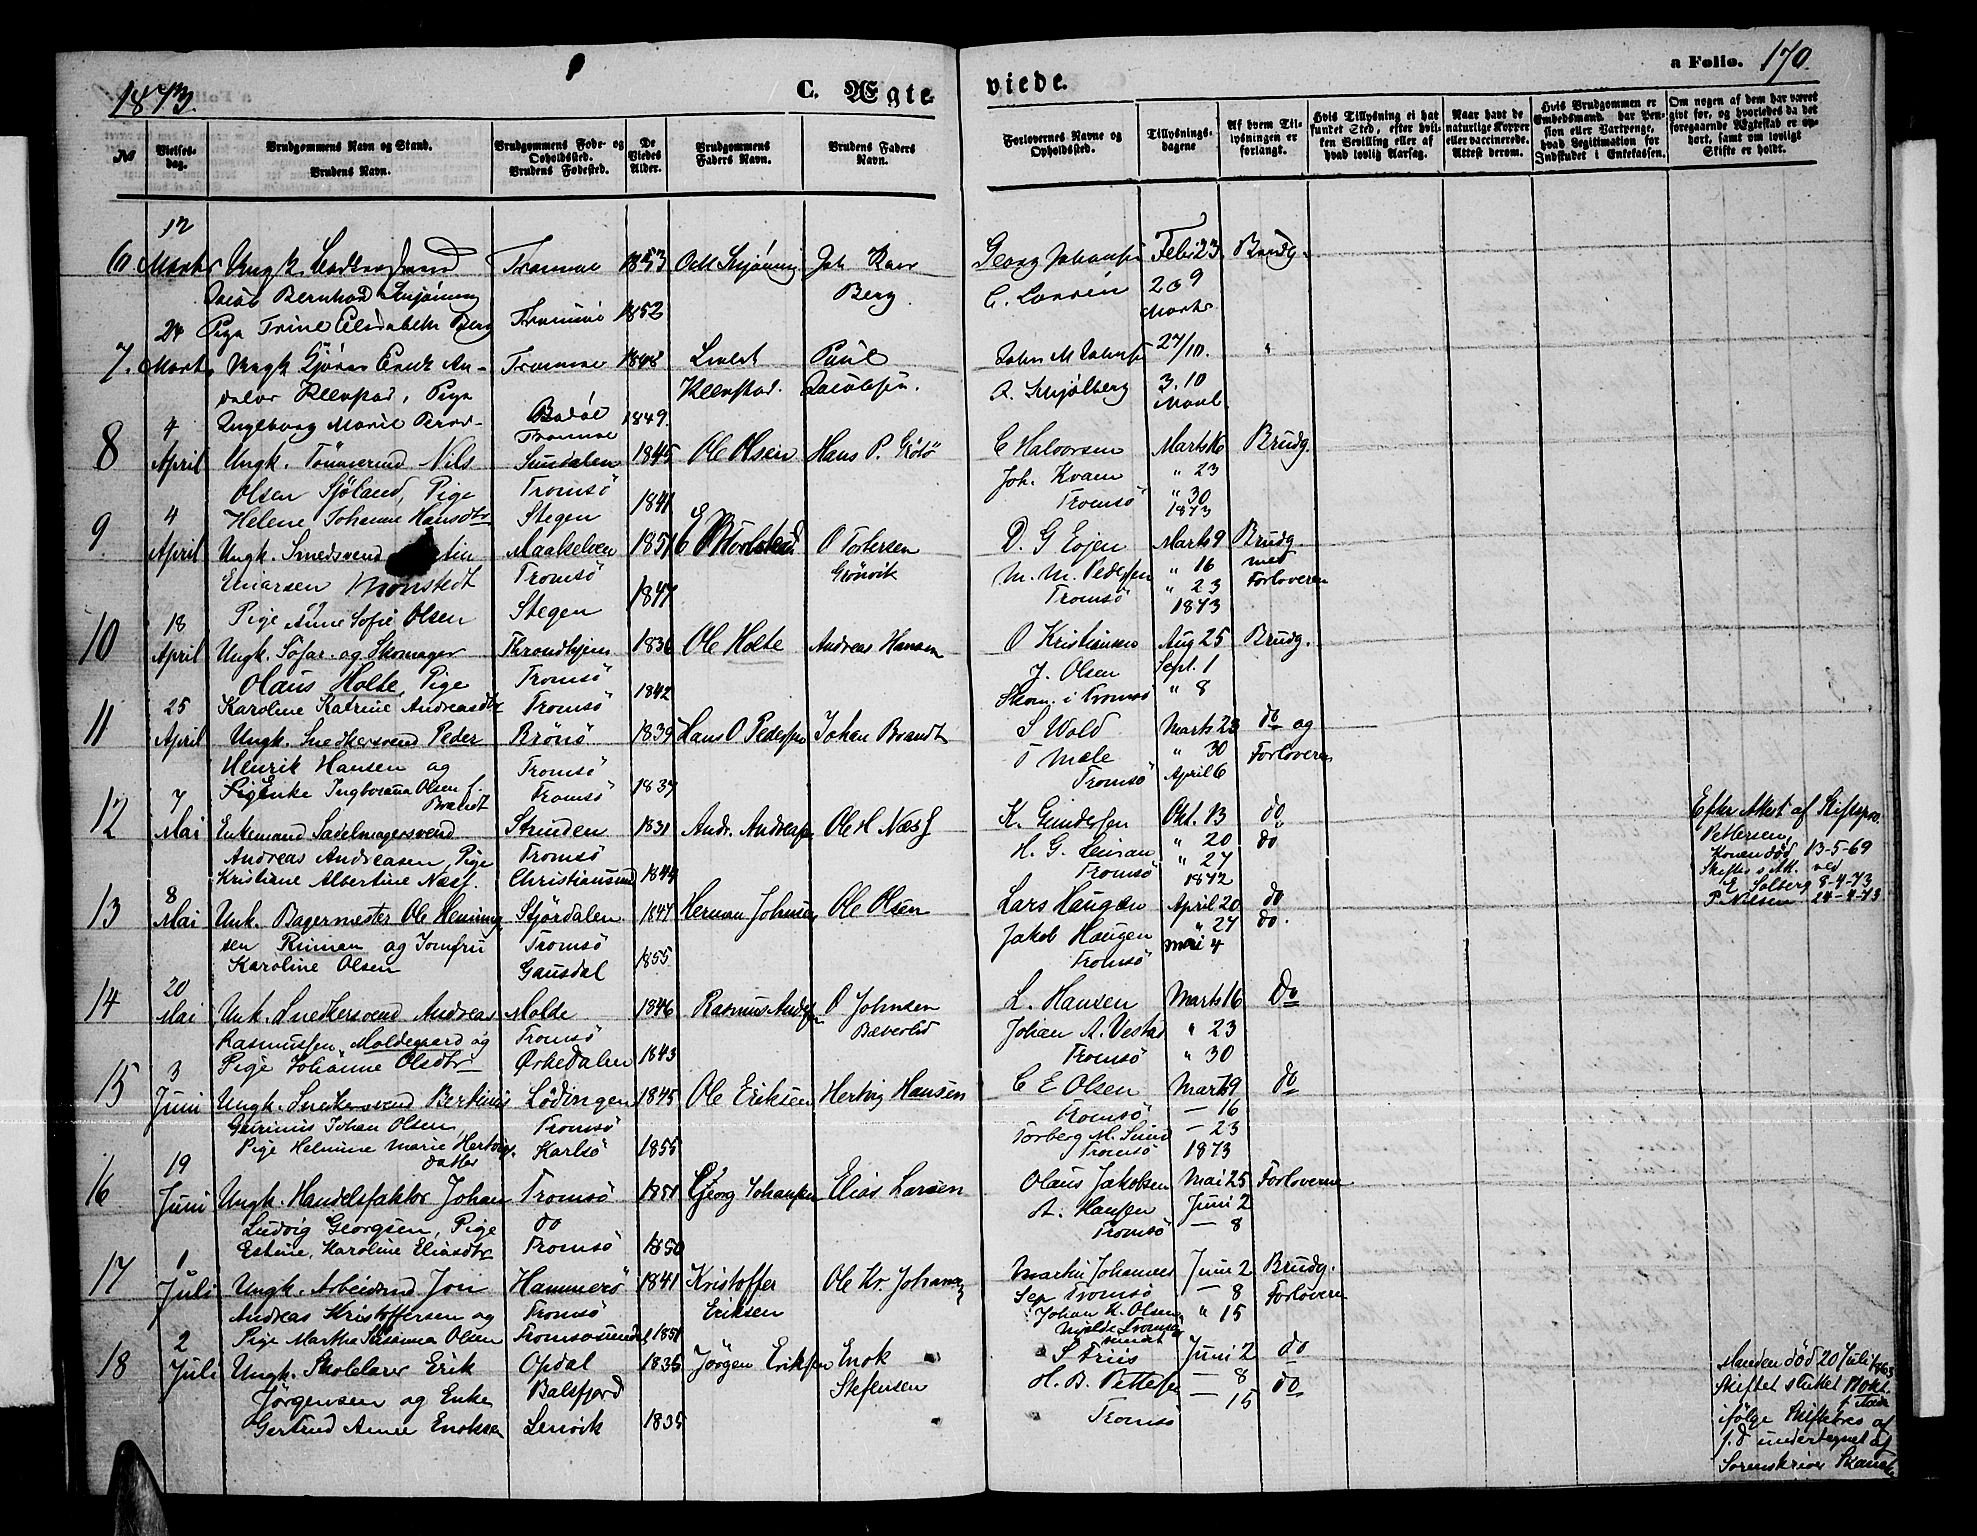 1873.
C. Ægte
viede.
a Folio. 170.
№
Vielses-dag.
Brudgommens Navn og Stand.
Brudens Navn.
Brudgommens Føde- og Opholdssted.
Brudens Fødested.
De Viedes Alder.
Brudgommens Faders Navn.
Brudens Faders Navn.
Forlovernes Navne og Opholdssted.
Tillysnings-dagene
Af hvem Tillysningen er forlangt.
Hvis Tillysning ei har fundet Sted, efter hvilken Bevilling eller af hvad lovlig Aarsag.
Naar havt de naturlige Kopper eller vaccinerede. Attest derom.
Hvis Brudgommen er Embedsmand, har Pension eller Vartpenge, hvad Legitimation for Indskudet i Enkekassen.
Om nogen af dem har været gift før, og hvorledes da det foregaaende Ægteskab er ophørt, samt om lovligt Skifte er holdt.
6 12 Marts Ungk.
Jacob Bernhard Skjöning
Pige Trine Elisabeth Berg
Tromsø
Tromsø
1853
1852
Skjöning
Berg.
Georg Johansen
C. Larsen
Feb 23
2 o 9
Marts
Brudg.
7. 24 Marts Ungk
Pige
Ingeborg Marie
Tromsø
Bodø
Tromsø
1848
1849.
Paul
Jacobsen.
27/10.
3. 10
"
8 4 April Ungk. Tönnerund Nils
Olsen Sjöland, Pige
Helene Johanne Hansdtr
Sundalen
Tromsö
Stegen
1845
1841
Ole Olsen
Hans P.
C Halvorsen
Joh. Kvam
Tromsö
Marts 16
" 23
" 30
1873
Brudg.
9 4 April Ungk. Smedsvend
Einarsen Mönstedt
Pige Anne Sofie Olsen
Maalselven
Tromsö
Stegen
1851
1847
O Tostersen
Grönvik
D. G Evjen
M. M. Pedersen
Tromsö
Marts 9
" 16
" 23
1873
Brudg.
med
Forloveren
10 18 April Ungk. Söfar. og Skomager
Olaus Holte, Pige
Karoline Katrine Andreasdtr
Throndhjem
Tromsö
Tromsö
1836
1842
Ole Holte
Andreas Hansen
O Kristiansen
J. Olsen
Skom. i Tromsö
Aug 25
Sept. 1
" 8
Brudg.
11 25 April Ungk. Snedkersvend Peder
Henrik Hansen og
Pigenke Ingborana Olsen f.
Brandt
Brönö
Tromsö
Tromsö
1839
1837
Hans O Pedersen
Johan Brandt
S Wold
T Mæle
Tromsö
Marts 23
" 30
April 6
do og
Forloveren
12 7 Mai Enkemand Sadelmagersvend
Andreas Andreasen, Pige
Kristine Albertine Næss.
Strinden
Tromsö
Christiansund
1831
1844
Andr. Andreasen
Ole H Næss
K. Gundersen
H. G.
Tromsö
Okt. 13
" 20
" 27
1872
do
do
Efter Attest af Skiftsprov.
Pettersen,
Konen död 13-5-69
Skiftes. Att. ved
E Solberg 8-4-73
P Nilsen 24-4-73
13 8 Mai Unk. Bagermester Ole Henning
sen Rinnan og Jomfru
Karoline Olsen
Stjördalen
Tromsö
Gausdal
1847
1855
Herman Johnsen
Ole Olsen
Lars Haugen
Jakob Haugen
Tromsö
April 20
" 27
Mai 4
do
do.
14 20 Mai Unk. Snedkersvend Andreas
Rasmussen Moldegaard og
Pige Johanne Olsdtr
Molde
Tromsö
Orkedalen
1846
1843
Rasmus Andersen
O Johnsen
Bæverlid
L. Hansen
Johan A. Vestad
Tromsö
Marts 16
" 23
" 30
Do
15 3 Juni Ungk. Snedkersvend Bertinus
Gerinius Johan Olsen
Pige Helmine Marie Hertvigs.
datter
Lödingen
Tromsö
Karlsö
1845
1855
Ole Eriksen
Hertvig Hansen
C E Olsen
Tromsö
Torberg M. Sund
Tromsö
Marts 9
— 16
— 23
1873
do
16 19 Juni Ungk. Handelsfaktor Johan
Ludvig Georgsen, Pige
Estine Karoline Eliasdtr
Tromsö
do
Tromsö
1851
1850
Georg Johansen
Elias Larsen
Olaus Jakobsen
A. Hansen
Tromsö
Mai 25
Juni 2
— 8
Forloverne
17 1 Juli Ungk. Arbeidsmd Jon
Andreas Kristoffersen og
Pige Martha Susanna Olsen
Hammerö
Tromsö
Tromsösundet
1841
1851
Kristoffer
Eriksen
Ole Kr. Johansen
Martin Johannes
Sen Tromsö
Johan K. Olsen
Mjelde Tromsö
sundet
Juni 2
— 8
" 15
Brudg.
Forloveren
18 2 Juli Ungk. Skolelærer Erik
Jörgensen og Enke
Gertrud Anne Enoksen
Opdal
Balsfjord
Lenvik
1835
1835
Jörgen Eriksen
Enok
Steffensen
S Friis
H. B. Pettersen
Tromsö
Juni 2
— 8
— 15
do
do
Manden död 20 Juli 1863
Skiftet sluttet 11 okt.
ifölge Skiftebrev af
s. d undertegnet af
Sorenskriver